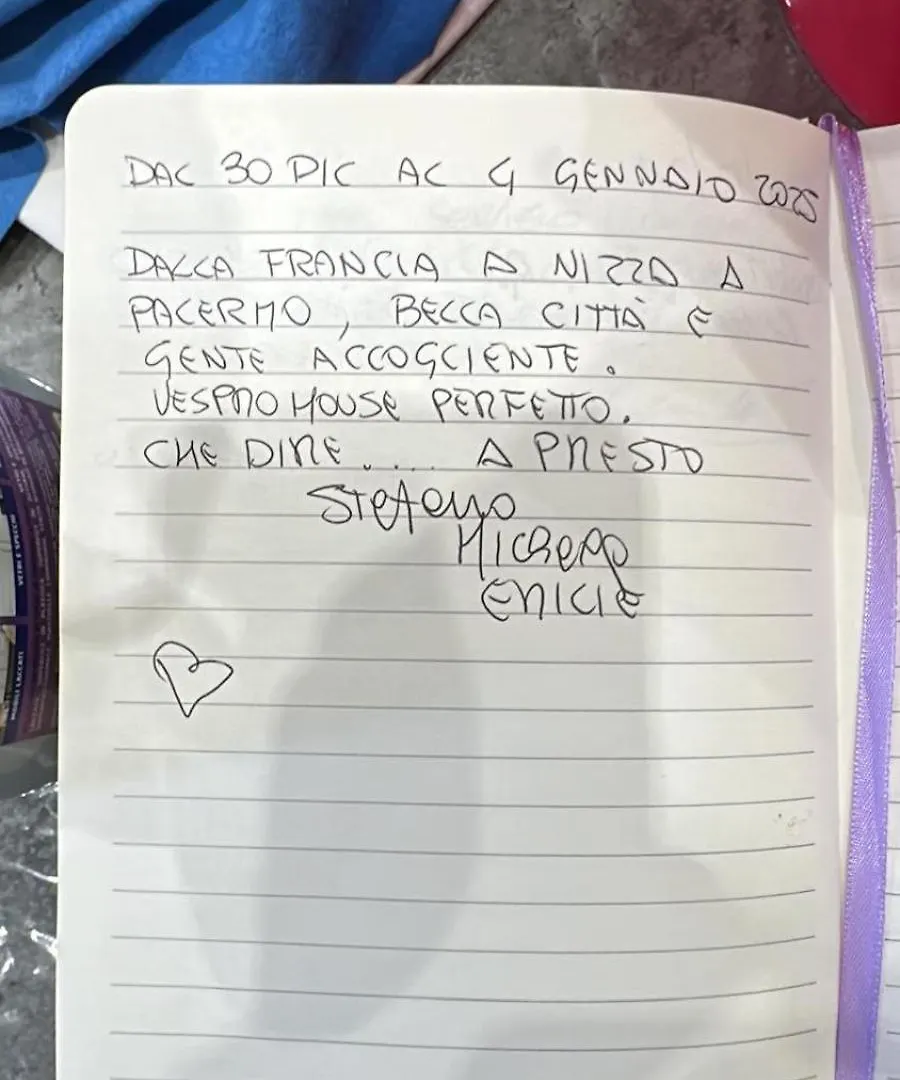 DAL 30 DIC AL 4 GENNAIO 2025
DALLA FRANCIA A NIZZA A
PALERMO, BELLA CITTÀ E
GENTE ACCOGLIENTE.
VESPRO HOUSE PERFETTO.
CHE DIRE.... A PRESTO
Stefano
VETRI E SPECCHI
MOBILI LACCATI